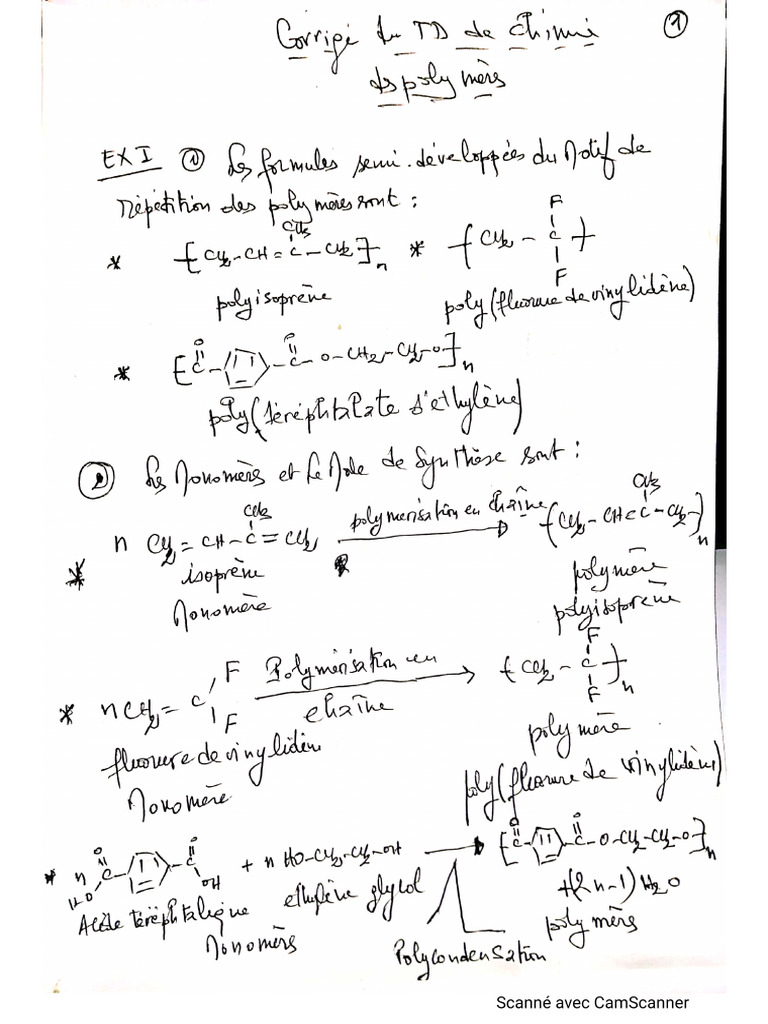 Corrigé du TD de chimie ①
des polymèrs
EX I ① Les formules semi-développées du Motif de
répétition des polymères sont :
CH3
* -[CH2-CH=C-CH2]-n * -(CH2-C)-
F
F
polyisoprène poly(fluorure de vinylidène)
O O
* [C- -C-O-CH2-CH2-O]n
poly(téréphtalate d'ethylène)
② Les Monomèrs et le Mode de Synthèse sont :
CH3 CH3
n CH2=CH-C=CH2 polymerisation en chaîne -(CH2-CH=C-CH2-]n
* isoprène polymère
Monomère polyisoprène
* nCH2=C F F Polymérisation en chaîne -(CH2-C)-n F F
fluorure de vinylidèn polymère
Monomère poly(fluorure de vinylidène)
* n HO-C- -C-OH O O + n HO-CH2-CH2-OH [C- -C-O-CH2-CH2-O]n O O
Acide téréphtalique ethylène glycol +(2n-1)H2O
Monomèrs polymèrs
Polycondensation
Scanné avec CamScanner